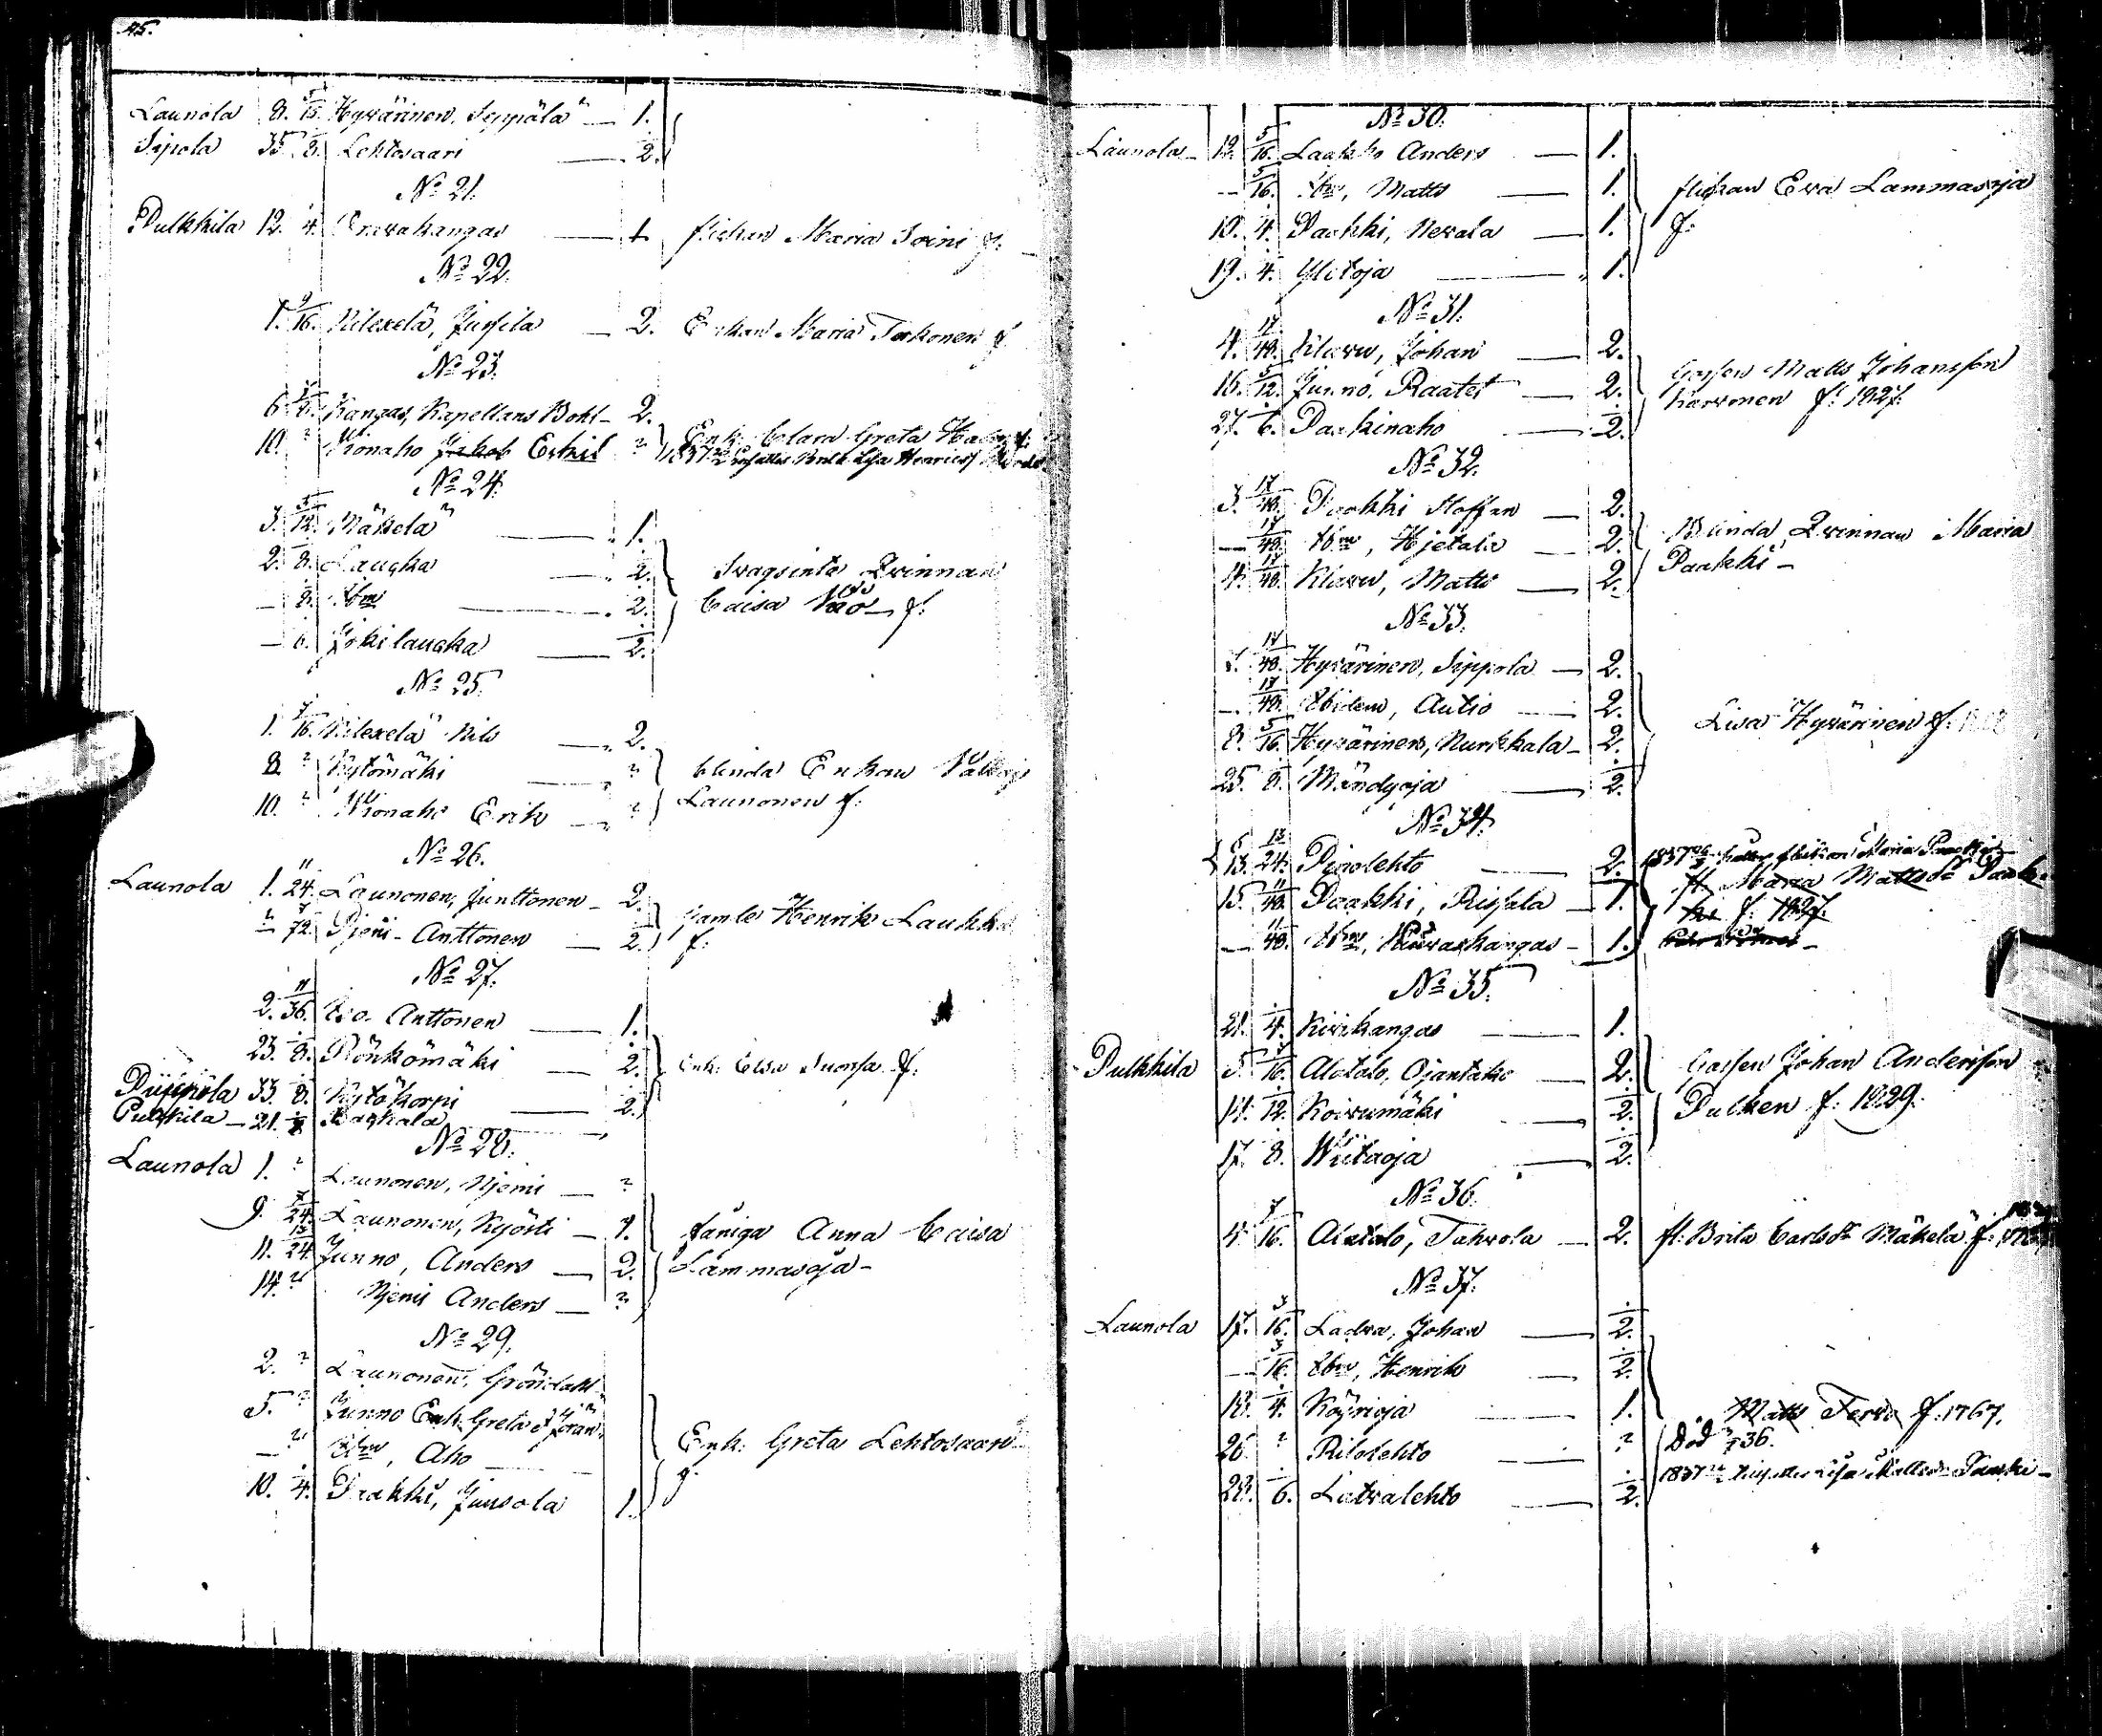 Launola 8. 5/16. Hyvärinen, Seppälä — 1.
Sipola 35. 1/8. Lehtosaari — 1/2.
No 21.
Pulkkila 12. 1/4. kangas — 1. flickan Maria Soini f.
No 22.
1. 9/16. Kilexelä, Jussila — 2. Enkan Maria Torkonen f.
No 23.
6. Kangas, Kapellans Bohl — 2.
10. ? Wionaho Jakob Eskil ? Enk. Clara Greta
No 24.
3. 5/12. Mäkelä — 1.
2. 1/8. Laugka — 1/2. Svagsinta Qvinnan
— 1/8. Ibm — 1/2. Caisa f.
— 1/6. Jokilaugka — 1/2.
No 25.
1. 7/16. Kilexelä Nils — 2.
8. ? Kytömäki — ? blinda Enkan
10. ? Wionaho Erik — ? Launonen f.
No 26.
Launola 1. 11/24. Launonen, Junttonen — 2. gamle Henrik Laukka
? 7/72. Pjeni-Anttonen — 1/2. f.
No 27.
2. 11/36. Iso-Anttonen — 1.
23. 1/8. Rönkömäki — 1/2. Enk. Elsa Suonsa f.
Piippola 33. 1/8. Kytökorpi — 1/2.
Pulkkila — 21. 1/8 Laakkala
No 28.
Launola 1. ? Launonen, Njemi — ?
9. 7/24. Launonen, Kyösti — 1. fåniga Anna Caisa
11. 13/24. Junno, Anders — 2. Lammasoja —
14. ? Njemi Anders — ?
No 29.
2. ? Launonen, Gröndahl
5. ? Junno Enk. Greta Jöran
— ? Ibm, Aho Enk: Greta Lehtosaari
10. 1/4. Paakki, Juusola 1. f.
No 30.
Launola — 12. 5/16. Laakko Anders — 1.
— 5/16. Ibm, Matts — 1. flickan Eva Lammasoja
18. 1/4. Paakki, Nevala — 1. f.
19. 1/4. Ylitoja — 1.
No 31.
4. 17/48. Klavu, Johan — 2.
16. 5/12. Junno, Raatet — 2. Gossen Matts Johansson
27. 1/6. Paakinaho — 1/2. Karvonen f: 1827.
No 32.
3. 17/48. Paakki Staffan — 2.
— 17/48. Ibm, Hjetala — 2. Blinda Qvinnan Maria
4. 17/48. Klavu, Matts — 2. Paakki —
No 33.
17/48. Hyvärinen, Sippola — 2.
— 17/48. Ibidem, Autio — 2.
8. 5/16. Hyvärinen, Nurkkala — 2. Lisa Hyvärinen f.
25. 1/8. Mändyoja — 1/2.
No 34.
13. 13/24. Pisolehto — 2. 1837 flickan Maria
15. 11/48. Paakki, Rissala — 1. fl. Maria Mattsdr Paak-
— 11/48. Ibm, kangas — 1. ki f: 1827.
No 35.
21. 1/4. Kivikangas — 1.
Pulkkila 5. 7/16. Alatalo, Ojantako — 2. Gossen Johan Andersson
14. 1/12. Koivumäki — 1/2. Pulken f: 1829.
17. 1/8. Wiitaoja — 1/2.
No 36.
4. 7/16. Alatalo, Tahvola — 2. fl. Brita Carlsdr Mäkelä f:
No 37.
Launola 17. 3/16. Ladva, Johan — 1/2.
— 3/16. Ibm, Henrik — 1/2.
18. 1/4. Köyrioja — 1. Matts Tervo f: 1767.
26. ? Ritolehto — ? Död 36.
28. 1/6. Latvalehto — 1/2. 1837 Lisa